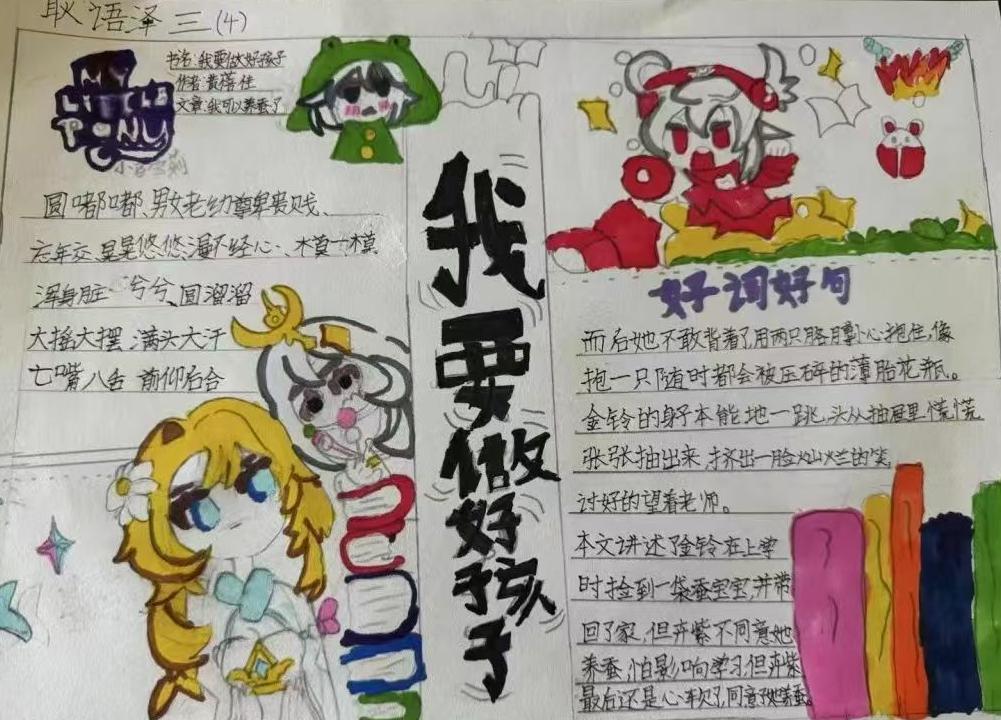 耿语泽 三(4)
MY
LITTLE
PONY
书名:我要做好孩子
作者:黄蓓佳
文章:我可以养蚕了
圆嘟嘟、男女老幼尊卑贵贱、
忘年交、晃晃悠悠、漫不经心、一模一样
浑身脏兮兮、圆溜溜
大摇大摆、满头大汗
七嘴八舌 前仰后合
我要做好孩子
好词好句
而后她不敢背着了,用两只胳膊小心抱住,像
抱一只随时都会被压碎的薄胎花瓶。
金铃的身子本能地一跳,头从抽屉里慌慌
张张抽出来,挤出一脸灿烂的笑,
讨好的望着老师。
本文讲述了金铃在上学
时捡到一袋蚕宝宝,并带
回了家,但卉紫不同意她
养蚕,怕影响学习,但卉紫
最后还是心软了,同意